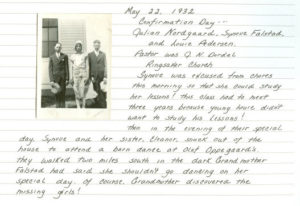 May 22, 1932
Confirmation Day--
Julian Nordgaard, Synove Falstad,
and Louie Pedersen.
Pastor was O. N. Dordal
Ringsaker Church
Synove was excused from chores
this morning so that she could study
her lessons! This class had to meet
three years because young Louie didn't
want to study his lessons!
Then in the evening of their special
day, Synove and her sister, Eleanor, snuck out of the
house to attend a barn dance at Olaf Oppegaard's
they walked two miles south in the dark. Grandmother
Falstad had said she shouldn't go dancing on her
special day. Of course, Grandmother discovered the
missing girls!